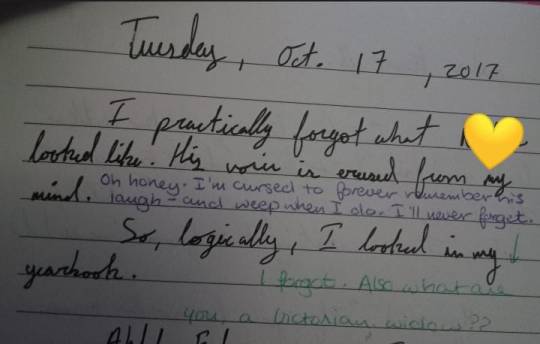 Tuesday, Oct. 17, 2017
I practically forgot what
looked like. His voice is erased from my
mind. Oh honey. I'm cursed to forever remember his
laugh - and weep when I do. I'll never forget.
So, logically, I looked in my
yearbook. I forgot. Also what are
you, a Victorian widow??